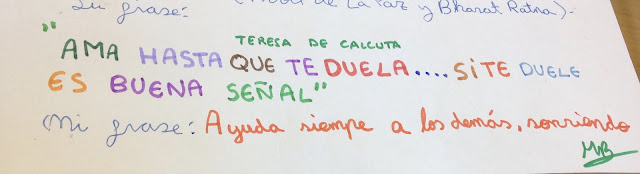 Su frase: (Nobel de La Paz y Bharat Ratna).
TERESA DE CALCUTA
"AMA HASTA QUE TE DUELA.... SI TE DUELE
ES BUENA SEÑAL"
Mi frase: Ayuda siempre a los demás, sonriendo
MB